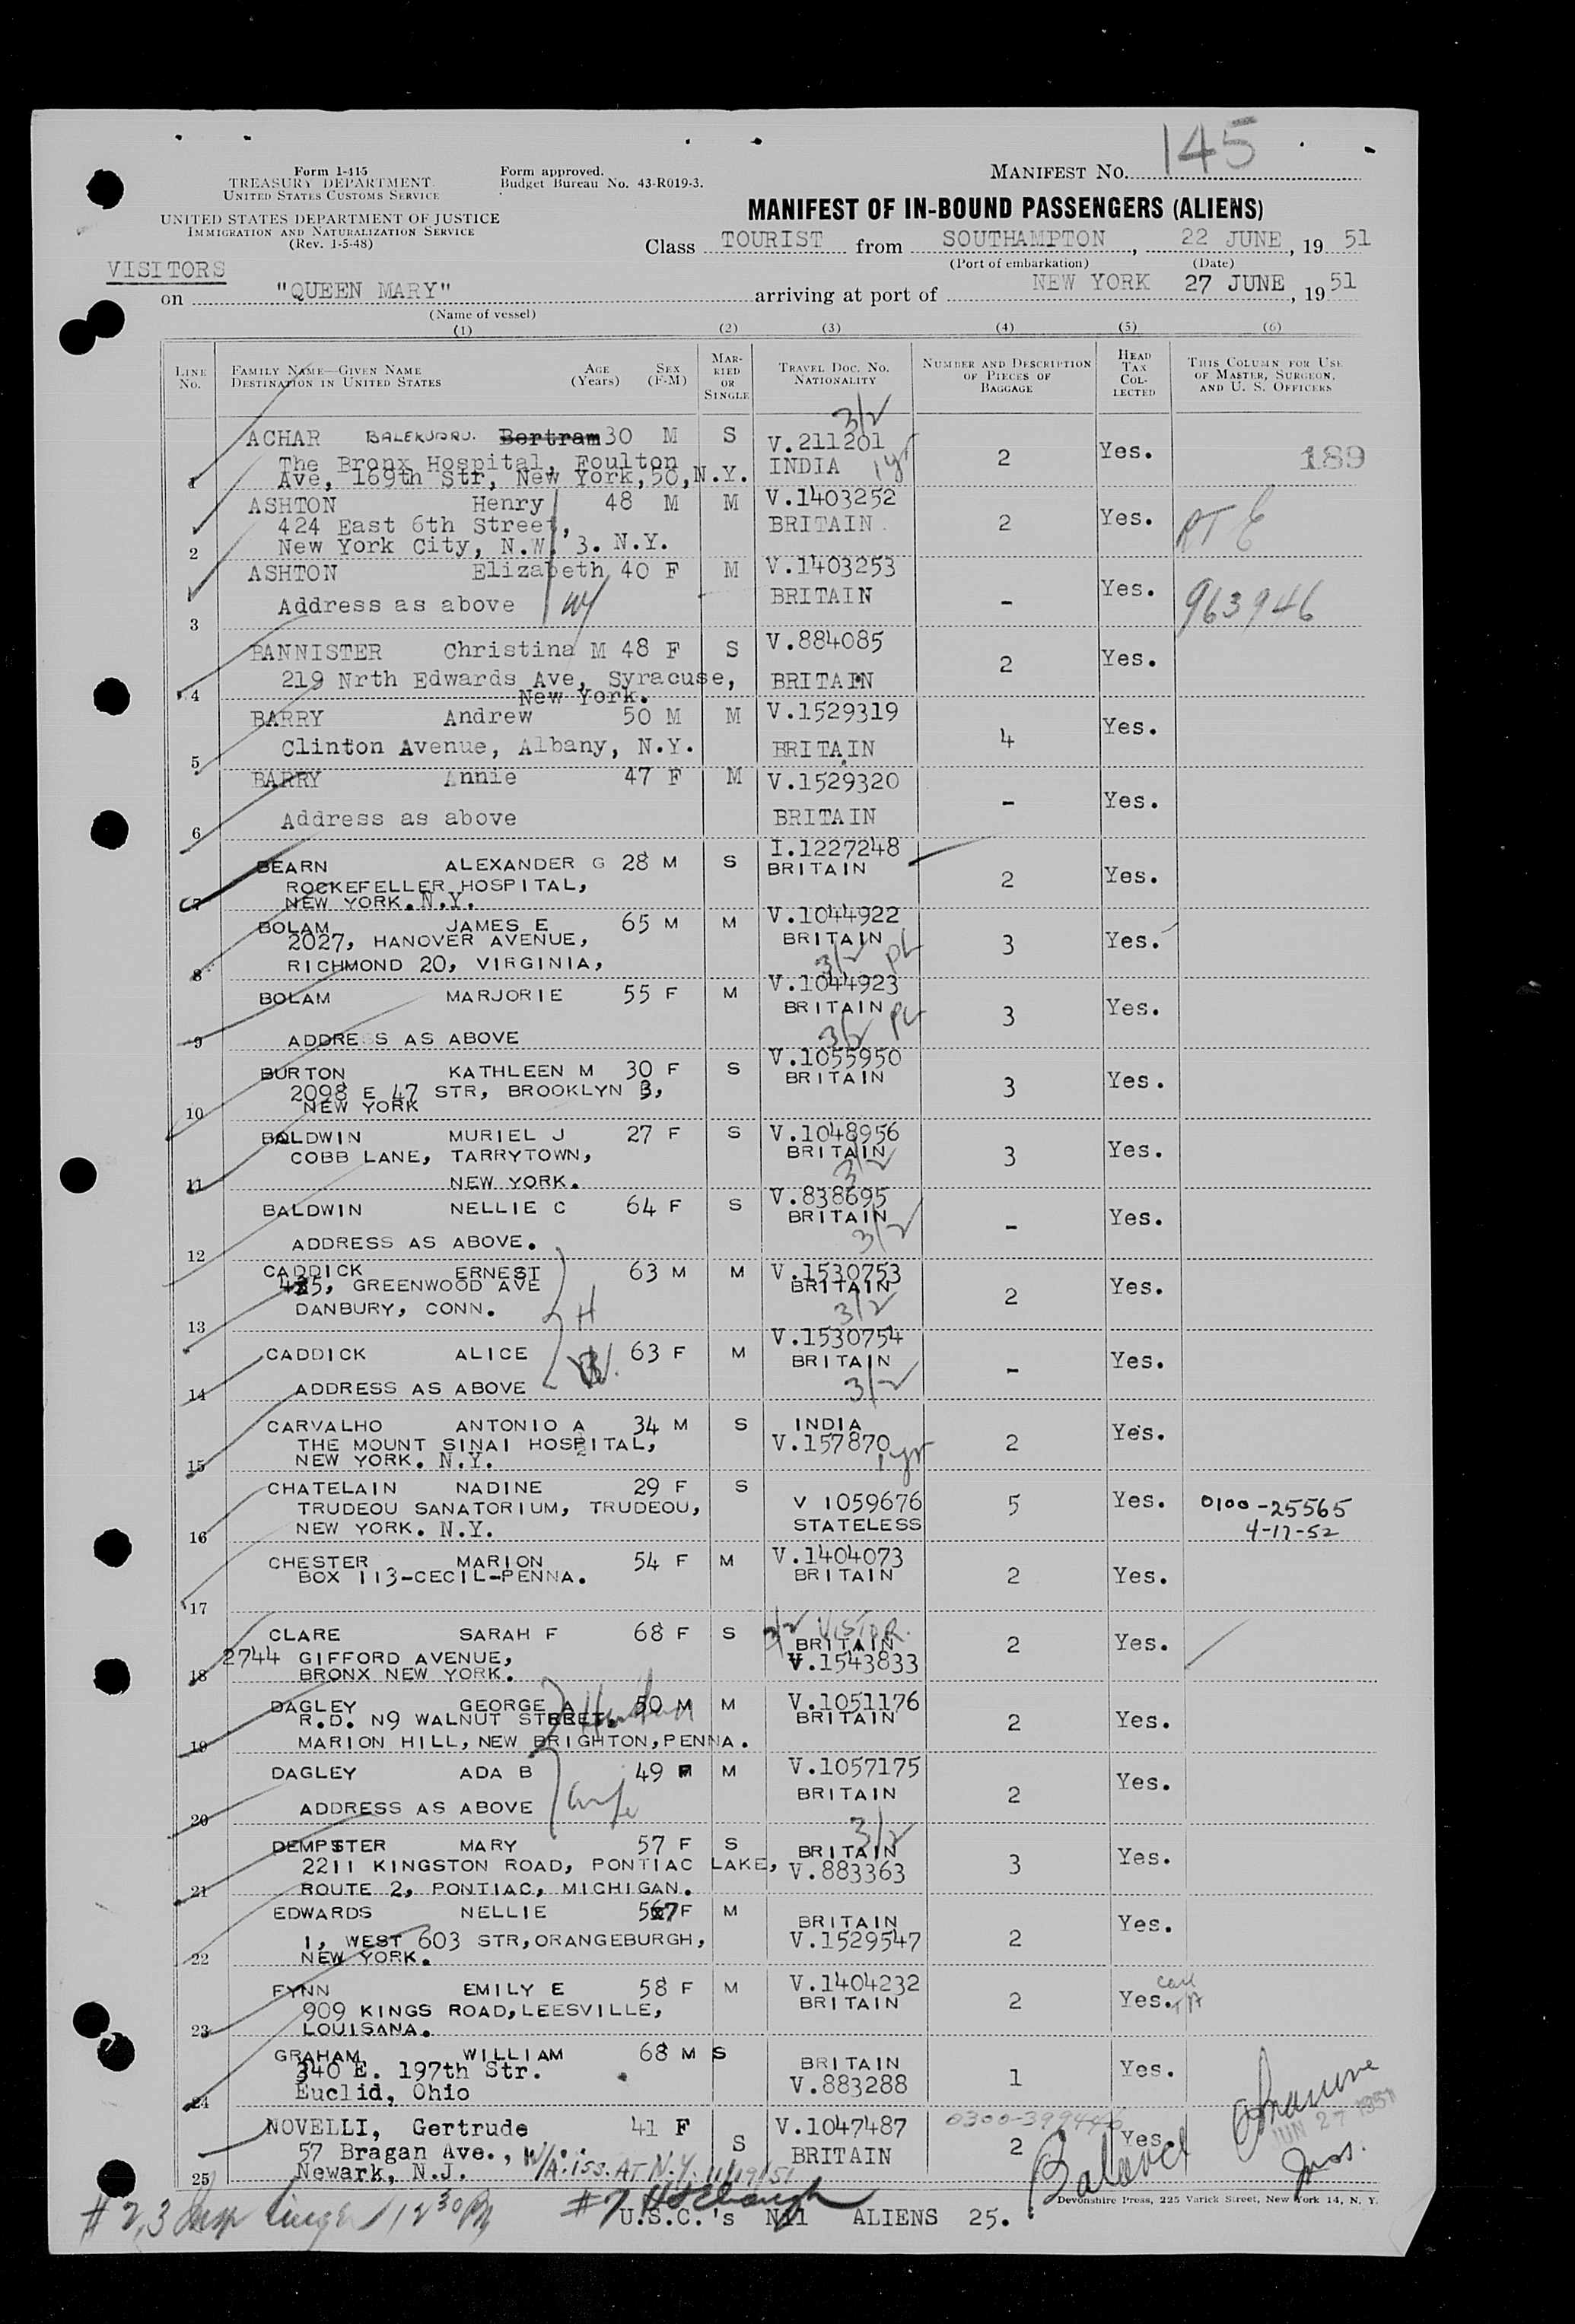 145
Form I-415
TREASURY DEPARTMENT
UNITED STATES CUSTOMS SERVICE
Form approved.
Budget Bureau No. 43-R019-3.
MANIFEST NO.
UNITED STATES DEPARTMENT OF JUSTICE
IMMIGRATION AND NATURALIZATION SERVICE
(Rev. 1-5-48)
MANIFEST OF IN-BOUND PASSENGERS (ALIENS)
Class TOURIST from SOUTHAMPTON, 22 JUNE, 19 51
(Port of embarkation) (Date)
VISITORS
on "QUEEN MARY" arriving at port of NEW YORK 27 JUNE, 19 51
(Name of vessel)
(1) (2) (3) (4) (5) (6)
LINE NO. FAMILY NAME—GIVEN NAME DESTINATION IN UNITED STATES AGE (Years) SEX (F-M) MARRIED OR SINGLE TRAVEL DOC. NO. NATIONALITY NUMBER AND DESCRIPTION OF PIECES OF BAGGAGE HEAD TAX COLLECTED THIS COLUMN FOR USE OF MASTER, SURGEON, AND U. S. OFFICERS
3/2
ACHAR Bertram 30 M S V.211201 2 Yes. 189
The Bronx Hospital, Foulton INDIA 1 yr
1 Ave, 169th Str, New York,50,N.Y.
ASHTON Henry 48 M M V.1403252 2 Yes.
424 East 6th Street, BRITAIN
2 New York City, N.W. 3. N.Y.
ASHTON Elizabeth 40 F M V.1403253 - Yes. 963946
Address as above BRITAIN
3
BANNISTER Christina M 48 F S V.884085 2 Yes.
219 Nrth Edwards Ave, Syracuse, BRITAIN
4 New York.
BARRY Andrew 50 M M V.1529319 4 Yes.
Clinton Avenue, Albany, N.Y. BRITAIN
5
BARRY Annie 47 F M V.1529320 - Yes.
Address as above BRITAIN
6
BEARN ALEXANDER G 28 M S I.1227248 2 Yes.
ROCKEFELLER HOSPITAL, BRITAIN
7 NEW YORK.N.Y.
BOLAM JAMES E 65 M M V.1044922 3 Yes.
2027, HANOVER AVENUE, BRITAIN
8 RICHMOND 20, VIRGINIA, 3/2 PL
BOLAM MARJORIE 55 F M V.1044923 3 Yes.
BRITAIN
9 ADDRESS AS ABOVE 3/2 PL
BURTON KATHLEEN M 30 F S V.1055950 3 Yes.
2098 E 47 STR, BROOKLYN 3, BRITAIN
10 NEW YORK
BALDWIN MURIEL J 27 F S V.1048956 3 Yes.
COBB LANE, TARRYTOWN, BRITAIN
11 NEW YORK. 3/2
BALDWIN NELLIE C 64 F S V.838695 - Yes.
BRITAIN
12 ADDRESS AS ABOVE. 3/2
CADDICK ERNEST 63 M M V.1530753 2 Yes.
GREENWOOD AVE BRITAIN
13 DANBURY, CONN. H 3/2
CADDICK ALICE 63 F M V.1530754 - Yes.
BRITAIN
14 ADDRESS AS ABOVE W. 3/2
CARVALHO ANTONIO A 34 M S INDIA 2 Yes.
THE MOUNT SINAI HOSPITAL, V.157870 1 yr
15 NEW YORK. N.Y.
CHATELAIN NADINE 29 F S V 1059676 5 Yes. 0100-25565
TRUDEOU SANATORIUM, TRUDEOU, STATELESS 4-17-52
16 NEW YORK. N.Y.
CHESTER MARION 54 F M V.1404073 2 Yes.
BOX 113-CECIL-PENNA. BRITAIN
17
3/2 VISTOR.
CLARE SARAH F 68 F S BRITAIN 2 Yes.
2744 GIFFORD AVENUE, V.1543833
18 BRONX NEW YORK.
DAGLEY GEORGE A 50 M M V.1051176 2 Yes.
R.D. N9 WALNUT STREET. Husband BRITAIN
19 MARION HILL, NEW BRIGHTON, PENNA.
DAGLEY ADA B 49 F M V.1057175 2 Yes.
BRITAIN
20 ADDRESS AS ABOVE wife
3/2
DEMPSTER MARY 57 F S BRITAIN 3 Yes.
2211 KINGSTON ROAD, PONTIAC LAKE, V.883363
21 ROUTE 2, PONTIAC, MICHIGAN.
EDWARDS NELLIE 57 F M BRITAIN 2 Yes.
1, WEST 603 STR,ORANGEBURGH, V.1529547
22 NEW YORK.
FYNN EMILY E 58 F M V.1404232 2 Yes.
909 KINGS ROAD,LEESVILLE, BRITAIN
23 LOUISANA.
GRAHAM WILLIAM 68 M S BRITAIN 1 Yes.
340 E. 197th Str. V.883288
24 Euclid, Ohio
NOVELLI, Gertrude 41 F S V.1047487 2 Yes.
57 Bragan Ave., BRITAIN
25 Newark, N.J. W/A. iss. AT N.Y. 11/19/51
JUN 27 1951
Devonshire Press, 225 Varick Street, New York 14, N. Y.
U.S.C.'s Nil ALIENS 25.